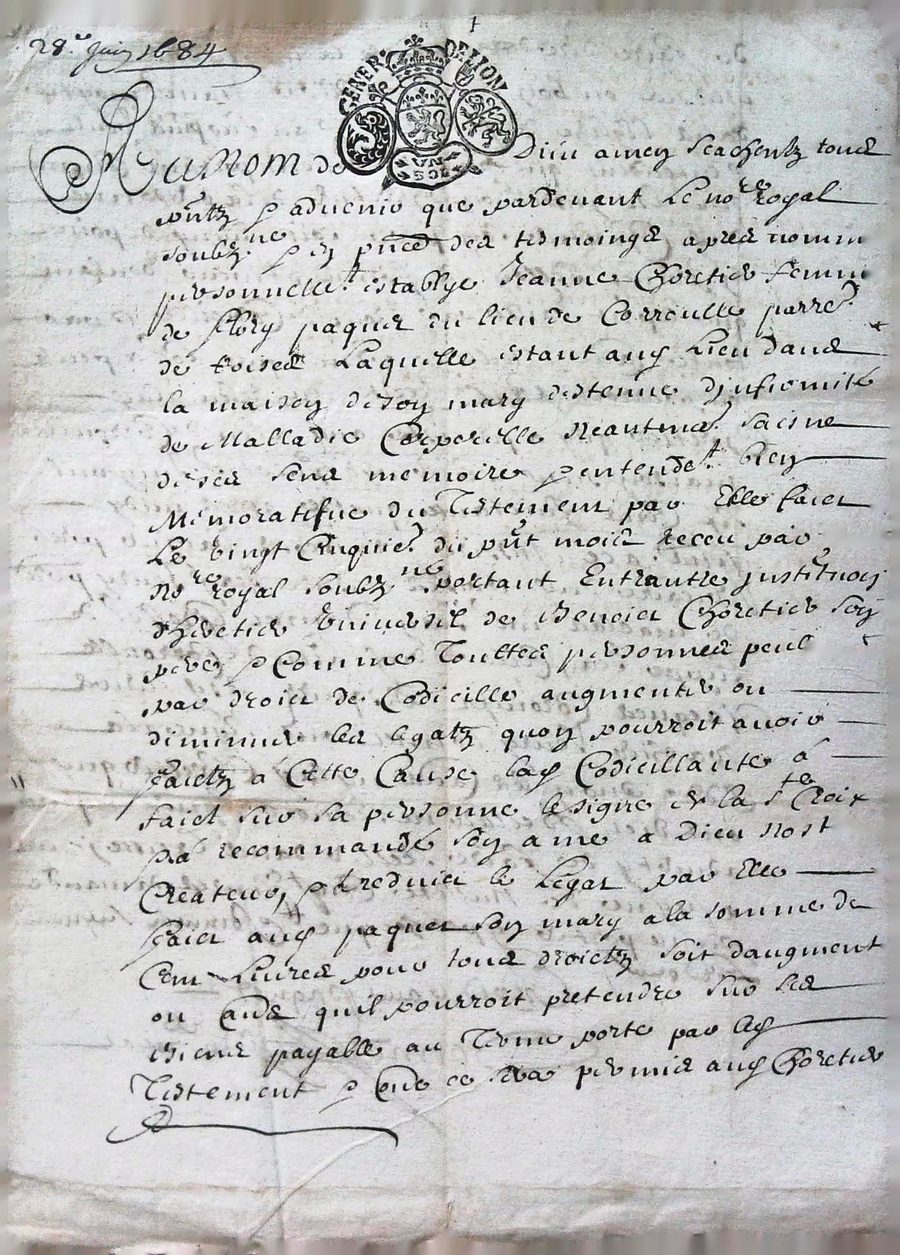 28e Juin 1684
GENER DE LION
VN SOL
Au nom de Dieu amen scachentz tous
pntz & advenir que pardevant le nore royal
soubzne & en pnce des tesmoings apres nomm
personnellet establye Jeanne Choretier femm
de fleury paques du lieu de parre
de Laquelle estant aud Lieu dans
la maison de son mary destenue dinfirmité
de Malladie Corporelle Neantmt saisne
de ses sens memoire & entendet bien
Memoratifve du Testement par Elle faict
Le vingt Cinquiee du pnt mois receu par
nore royal soubzne portant Entrautre justituon
dheretier Universel de Benoict Choretier son
pere & Comme Touttes personnes peul
par droict de Codicille augmenter ou
diminuer les legatz quon pourroit avoir
faictz a Cette Cause lad Codicillante à
faict sur sa personne le signe de la ste Croix
recommandé son ame a Dieu nost
Createur, & reduict le Legat par Elle
faict aud paques son mary a la somme de
Cent Livres pour tous droictz soit daugment
ou quil pourroit pretendre sur ses
Biens payable au Terme porte par led
Testement & ce sera permis aud Choretier